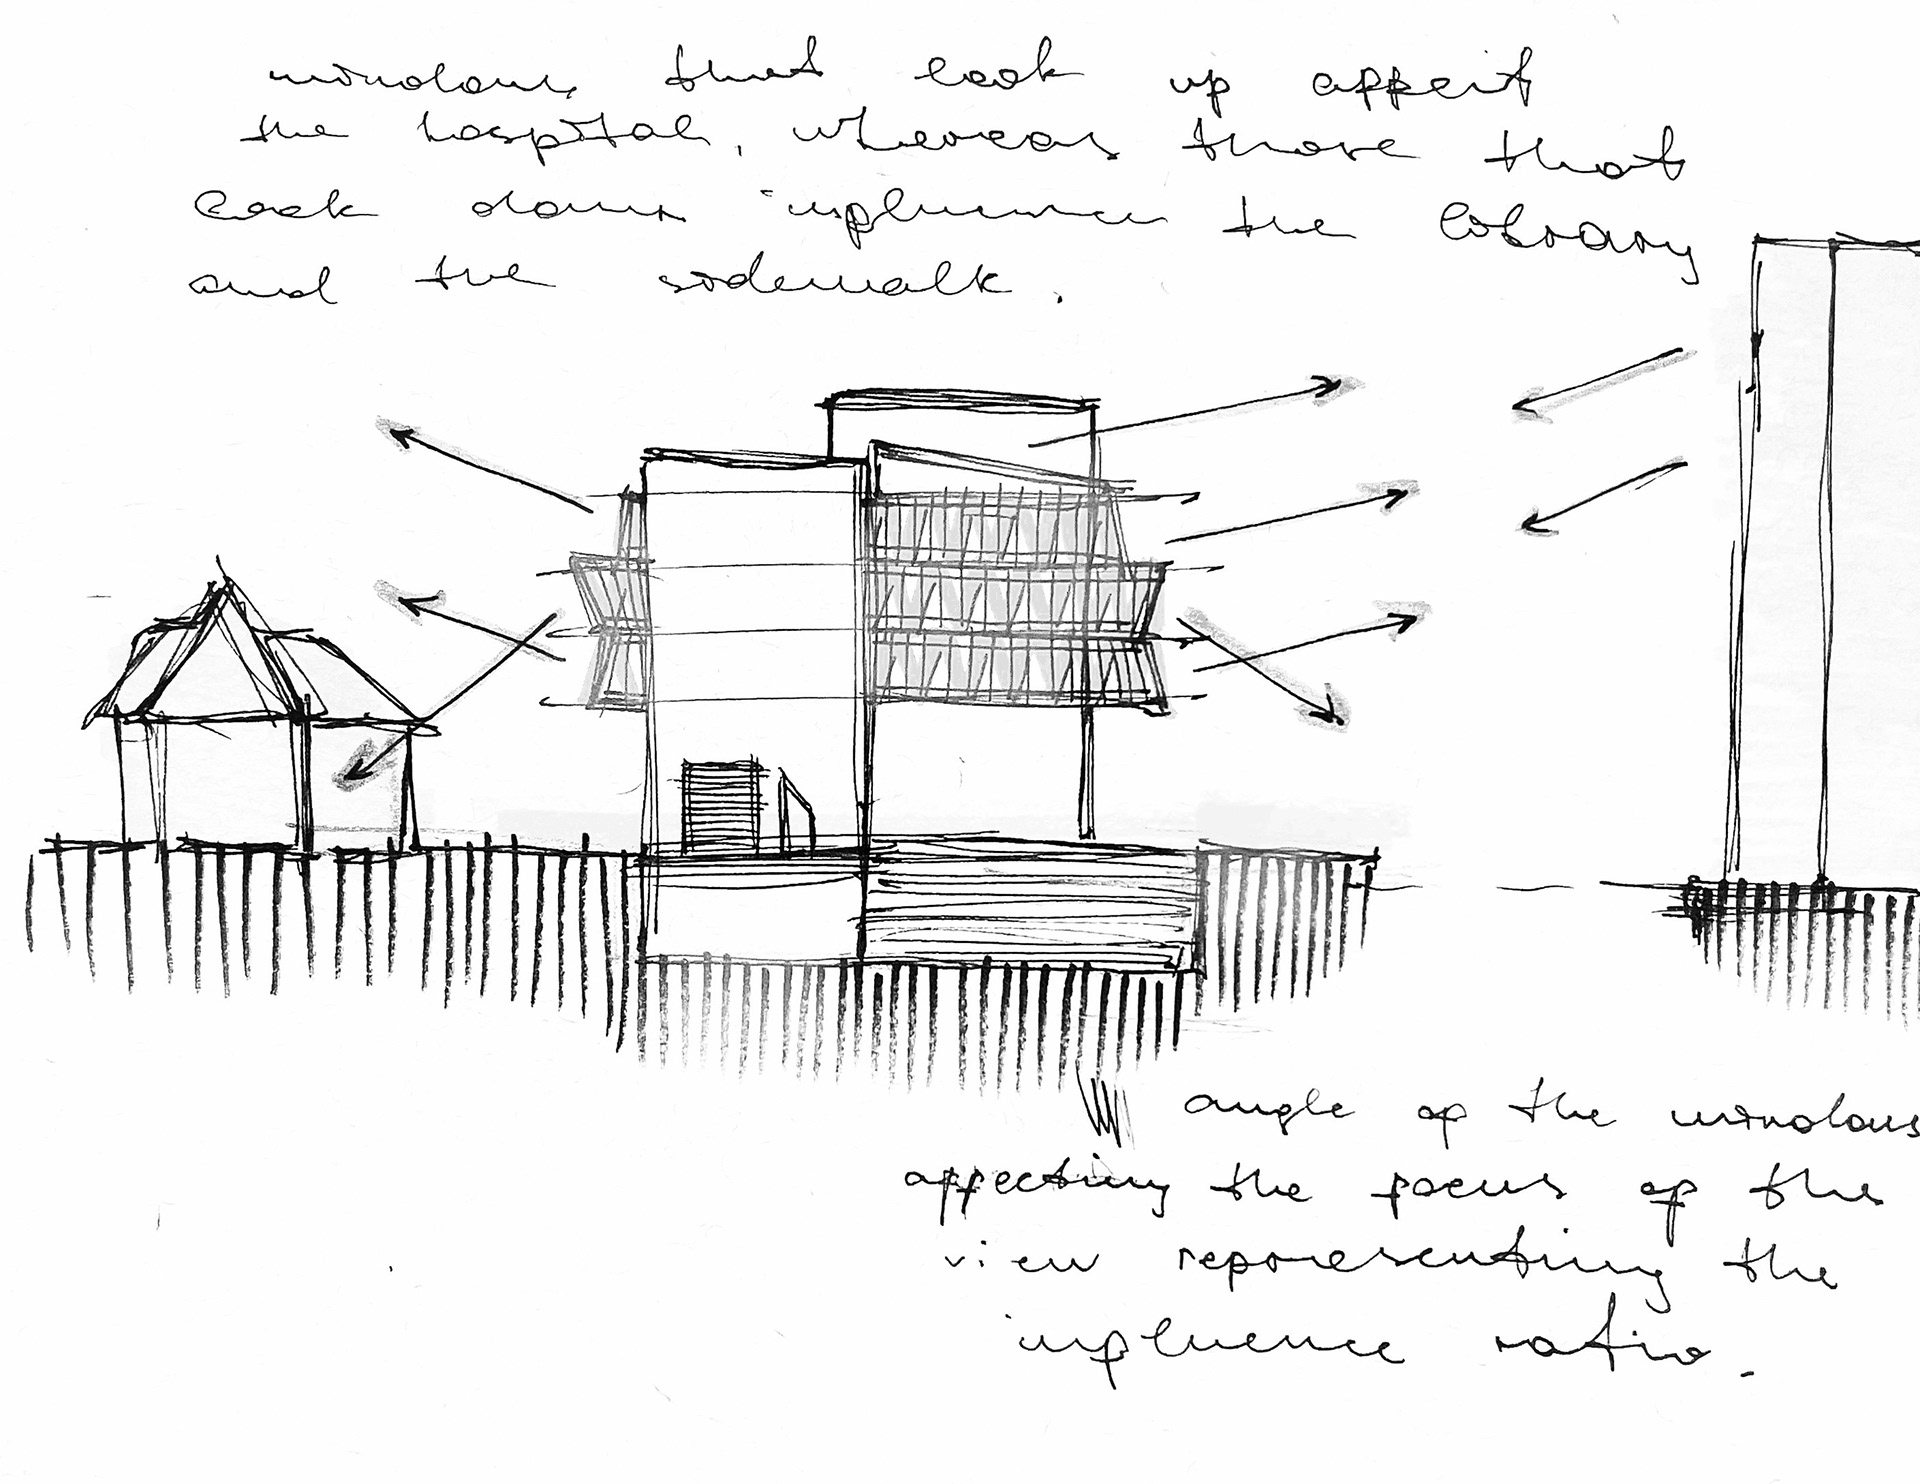 windows that look up affect
the hospital, whereas those that
look down influence the library
and the sidewalk.
angle of the windows
affecting the focus of the
view representing the
influence ratio.